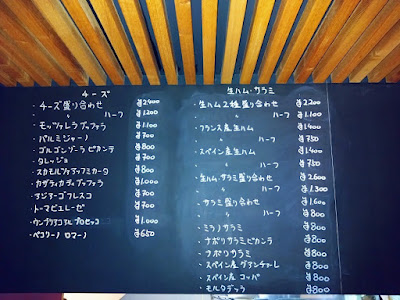 チーズ
・チーズ盛り合わせ ¥2400
・ 〃 ハーフ ¥1200
・モッツァレラ ブッファラ ¥1.100
・パルミジャーノ ¥700
・ゴルゴンゾーラ ピカンテ ¥800
・タレッジョ ¥700
・スカモルツァアッフミカータ ¥800
・カザティカ ディ ブッファラ ¥1.000
・アジアーゴ フレスコ ¥700
・トーマ ピエモンテーゼ ¥700
・ウンブリアーコ アル プロセッコ ¥1.000
・ペコリーノ ロマーノ ¥650
生ハム・サラミ
・生ハム2種盛り合わせ ¥2.200
・ 〃 ハーフ ¥1.100
・フランス産生ハム ¥1400
・ 〃 ハーフ ¥750
・スペイン産生ハム ¥1400
・ 〃 ハーフ ¥750
・生ハム・サラミ盛り合わせ ¥2600
・ 〃 ハーフ ¥1.300
・サラミ盛り合わせ ¥1.600
・ 〃 ハーフ ¥800
・ミラノサラミ ¥800
・ナポリサラミピカンテ ¥800
・ナポリサラミ ¥800
・スペイン産 グアンチャーレ ¥800
・スペイン産 コッパ ¥800
・モルタデッラ ¥800